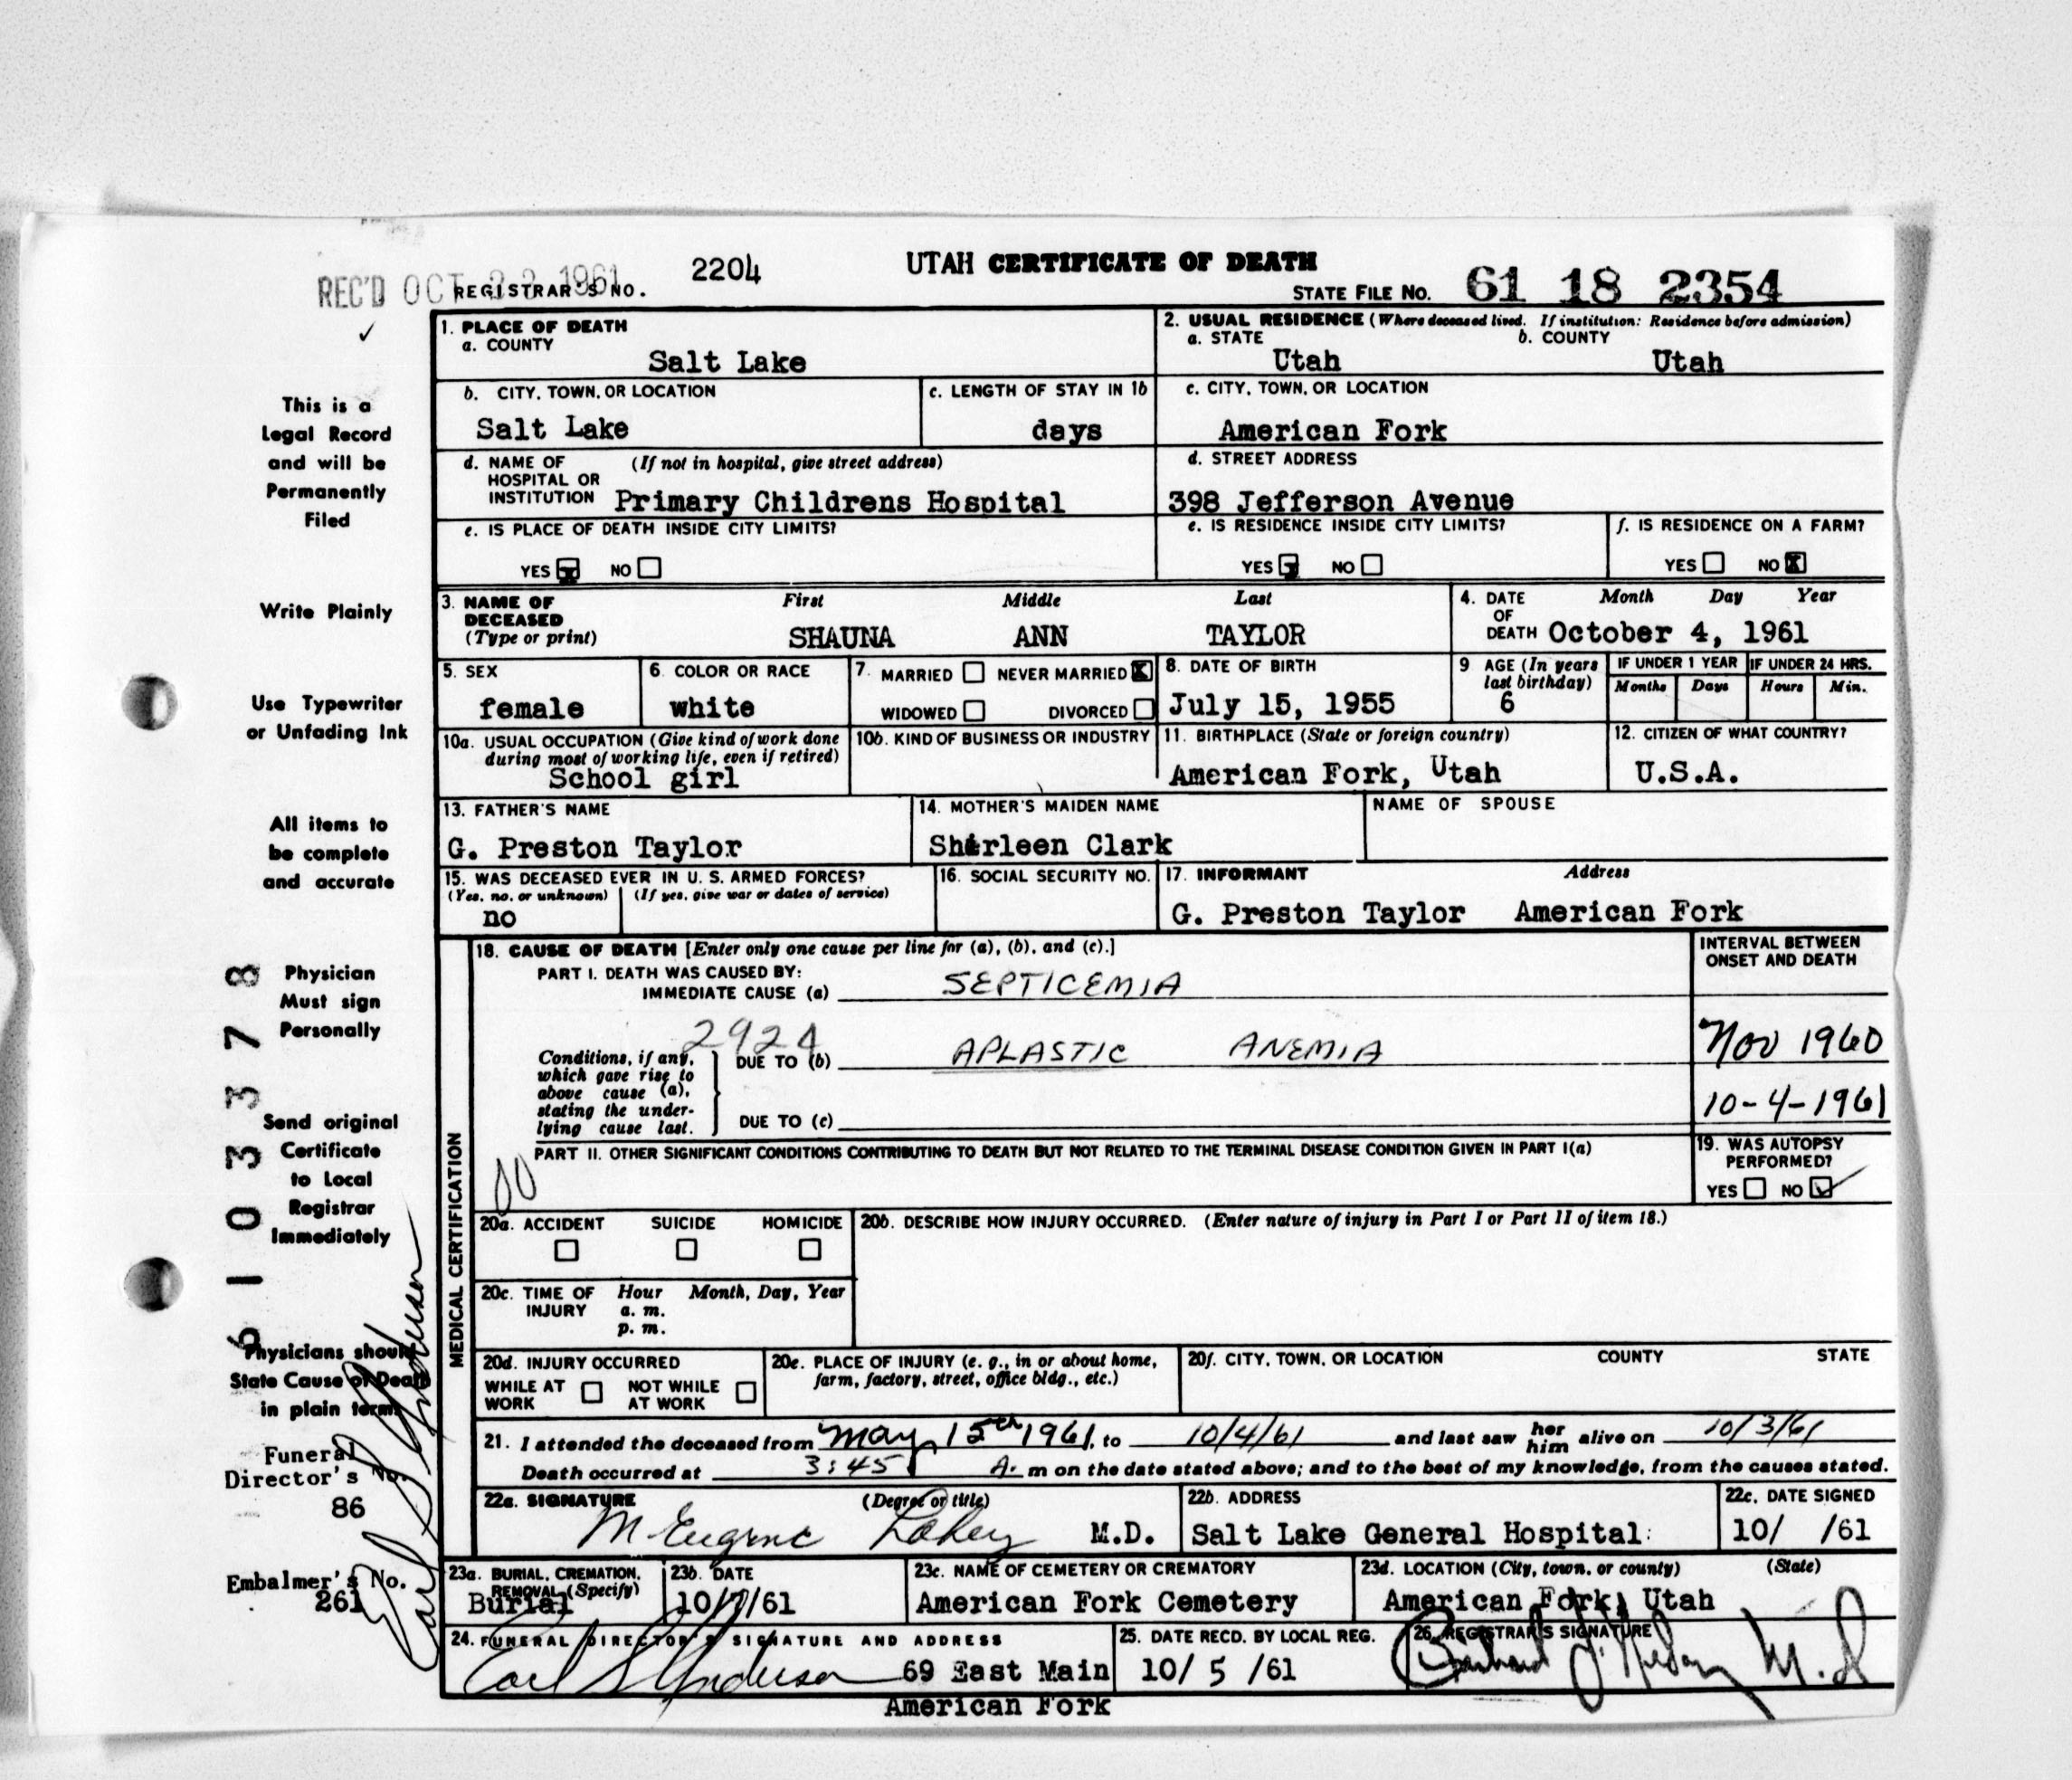 REC'D OCT 1961
REGISTRAR'S NO. 2204
UTAH CERTIFICATE OF DEATH
STATE FILE NO. 61 18 2354
✓
This is a
Legal Record
and will be
Permanently
Filed
Write Plainly
Use Typewriter
or Unfading Ink
All items to
be complete
and accurate
Physician
Must sign
Personally
Send original
Certificate
to Local
Registrar
Immediately
Physicians should
State Cause of Death
in plain terms
Funeral
Director's No.
86
Embalmer's No.
261
Earl S Anderson
61033378
1. PLACE OF DEATH
a. COUNTY
Salt Lake
2. USUAL RESIDENCE (Where deceased lived. If institution: Residence before admission)
a. STATE b. COUNTY
Utah Utah
b. CITY, TOWN, OR LOCATION
Salt Lake
c. LENGTH OF STAY IN 1b
days
c. CITY, TOWN, OR LOCATION
American Fork
d. NAME OF (If not in hospital, give street address)
HOSPITAL OR
INSTITUTION Primary Childrens Hospital
d. STREET ADDRESS
398 Jefferson Avenue
e. IS PLACE OF DEATH INSIDE CITY LIMITS?
YES NO
e. IS RESIDENCE INSIDE CITY LIMITS?
YES NO
f. IS RESIDENCE ON A FARM?
YES NO X
3. NAME OF First Middle Last
DECEASED
(Type or print) SHAUNA ANN TAYLOR
4. DATE Month Day Year
OF
DEATH October 4, 1961
5. SEX
female
6. COLOR OR RACE
white
7. MARRIED NEVER MARRIED X
WIDOWED DIVORCED
8. DATE OF BIRTH
July 15, 1955
9 AGE (In years
last birthday)
6
IF UNDER 1 YEAR
Months Days
IF UNDER 24 HRS.
Hours Min.
10a. USUAL OCCUPATION (Give kind of work done
during most of working life, even if retired)
School girl
10b. KIND OF BUSINESS OR INDUSTRY
11. BIRTHPLACE (State or foreign country)
American Fork, Utah
12. CITIZEN OF WHAT COUNTRY?
U.S.A.
13. FATHER'S NAME
G. Preston Taylor
14. MOTHER'S MAIDEN NAME
Shirleen Clark
NAME OF SPOUSE
15. WAS DECEASED EVER IN U. S. ARMED FORCES?
(Yes, no, or unknown) (If yes, give war or dates of service)
no
16. SOCIAL SECURITY NO.
17. INFORMANT Address
G. Preston Taylor American Fork
MEDICAL CERTIFICATION
18. CAUSE OF DEATH [Enter only one cause per line for (a), (b), and (c).]
PART I. DEATH WAS CAUSED BY:
IMMEDIATE CAUSE (a) SEPTICEMIA
INTERVAL BETWEEN
ONSET AND DEATH
2924
Conditions, if any,
which gave rise to
above cause (a),
stating the under-
lying cause last.
DUE TO (b) APLASTIC ANEMIA
Nov 1960
10-4-1961
DUE TO (c)
PART II. OTHER SIGNIFICANT CONDITIONS CONTRIBUTING TO DEATH BUT NOT RELATED TO THE TERMINAL DISEASE CONDITION GIVEN IN PART I(a)
19. WAS AUTOPSY
PERFORMED?
YES NO ✓
20a. ACCIDENT SUICIDE HOMICIDE
20b. DESCRIBE HOW INJURY OCCURRED. (Enter nature of injury in Part I or Part II of item 18.)
20c. TIME OF Hour Month, Day, Year
INJURY a. m.
p. m.
20d. INJURY OCCURRED
WHILE AT NOT WHILE
WORK AT WORK
20e. PLACE OF INJURY (e. g., in or about home,
farm, factory, street, office bldg., etc.)
20f. CITY, TOWN, OR LOCATION COUNTY STATE
21. I attended the deceased from May 15th 1961, to 10/4/61 and last saw her him alive on 10/3/61
Death occurred at 3:45 A. m on the date stated above; and to the best of my knowledge, from the causes stated.
22a. SIGNATURE (Degree or title)
M Eugene Lahey M.D.
22b. ADDRESS
Salt Lake General Hospital
22c. DATE SIGNED
10/ /61
23a. BURIAL, CREMATION,
REMOVAL (Specify)
Burial
23b. DATE
10/7/61
23c. NAME OF CEMETERY OR CREMATORY
American Fork Cemetery
23d. LOCATION (City, town, or county) (State)
American Fork, Utah
24. FUNERAL DIRECTOR'S SIGNATURE AND ADDRESS
Earl S Anderson 69 East Main
American Fork
25. DATE RECD. BY LOCAL REG.
10/ 5 /61
26. REGISTRAR'S SIGNATURE
M.D